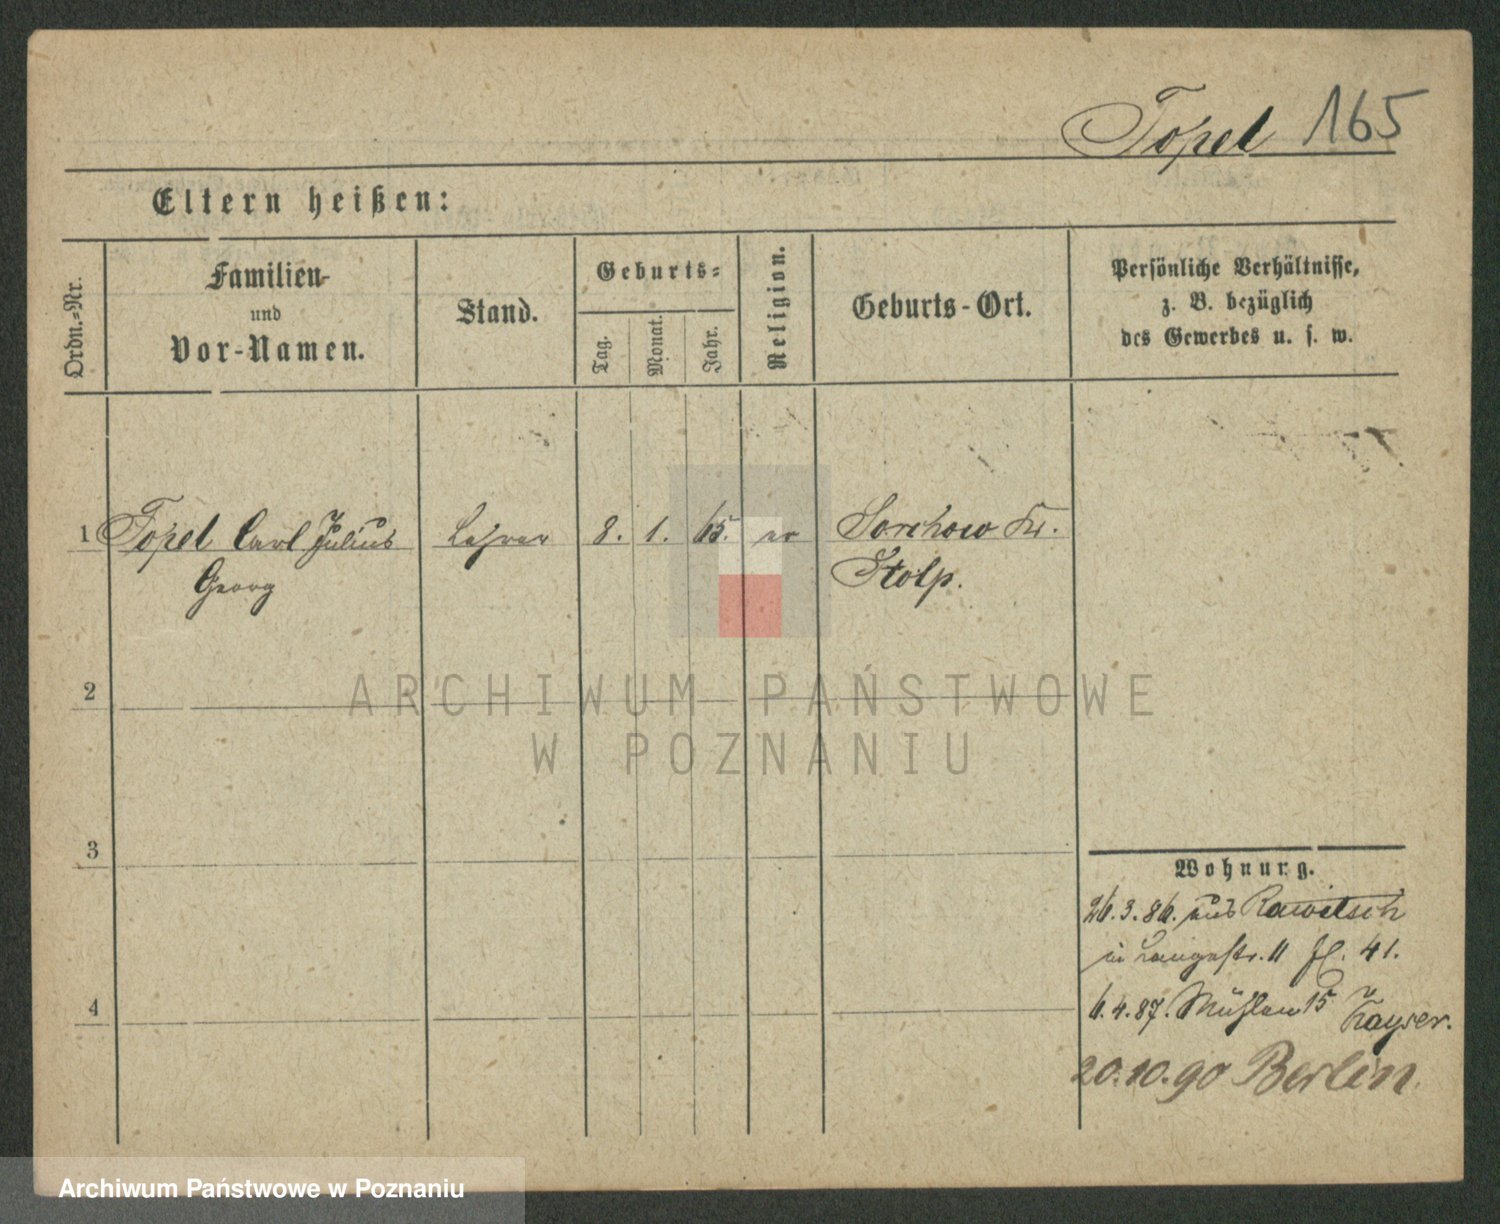 Topel 165
Eltern heißen:
Ordn.-Nr.
Familien-
und
Vor-Namen.
Stand.
Geburts-
Tag.
Monat.
Jahr.
Religion.
Geburts-Ort.
Persönliche Verhältnisse,
z. B. bezüglich
des Gewerbes u. s. w.
1 Topel Carl Julius Lehrer 8. 1. 65. ev Sorchow Kr.
Georg Stolp.
2
ARCHIWUM PAŃSTWOWE
W POZNANIU
3
Wohnung.
26.3.86. aus Rawitsch
in Langestr. 11 41.
4
6.4.87. Mühlen 15 Kayser.
20.10.90 Berlin
Archiwum Państwowe w Poznaniu